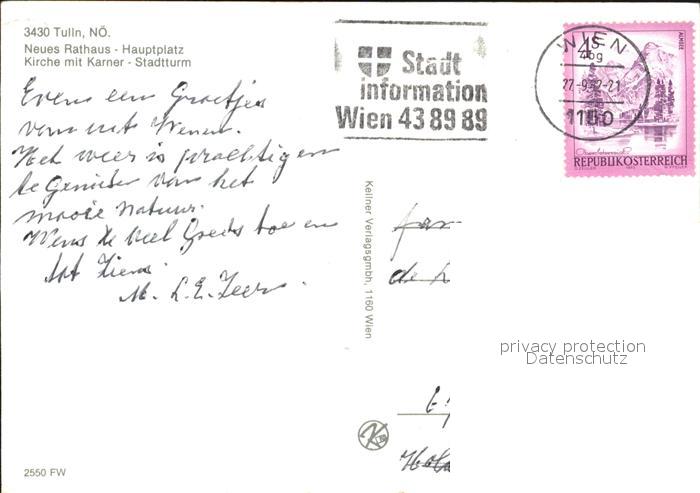 3430 Tulln, NÖ.
Neues Rathaus - Hauptplatz
Kirche mit Karner - Stadtturm
Even een Groetjes
vanuit Wenen.
Het weer is prachtig en
te Genieten van het
mooie natuur.
Wens je veel Goeds toe en
tot Ziens.
M. L.E.
Stadt
information
Wien 43 89 89
WIEN
-9.82-21
1150
4S
ALMSEE
REPUBLIK ÖSTERREICH
Kellner Verlagsgmbh, 1160 Wien
fam
de
privacy protection
Datenschutz
Hola
2550 FW